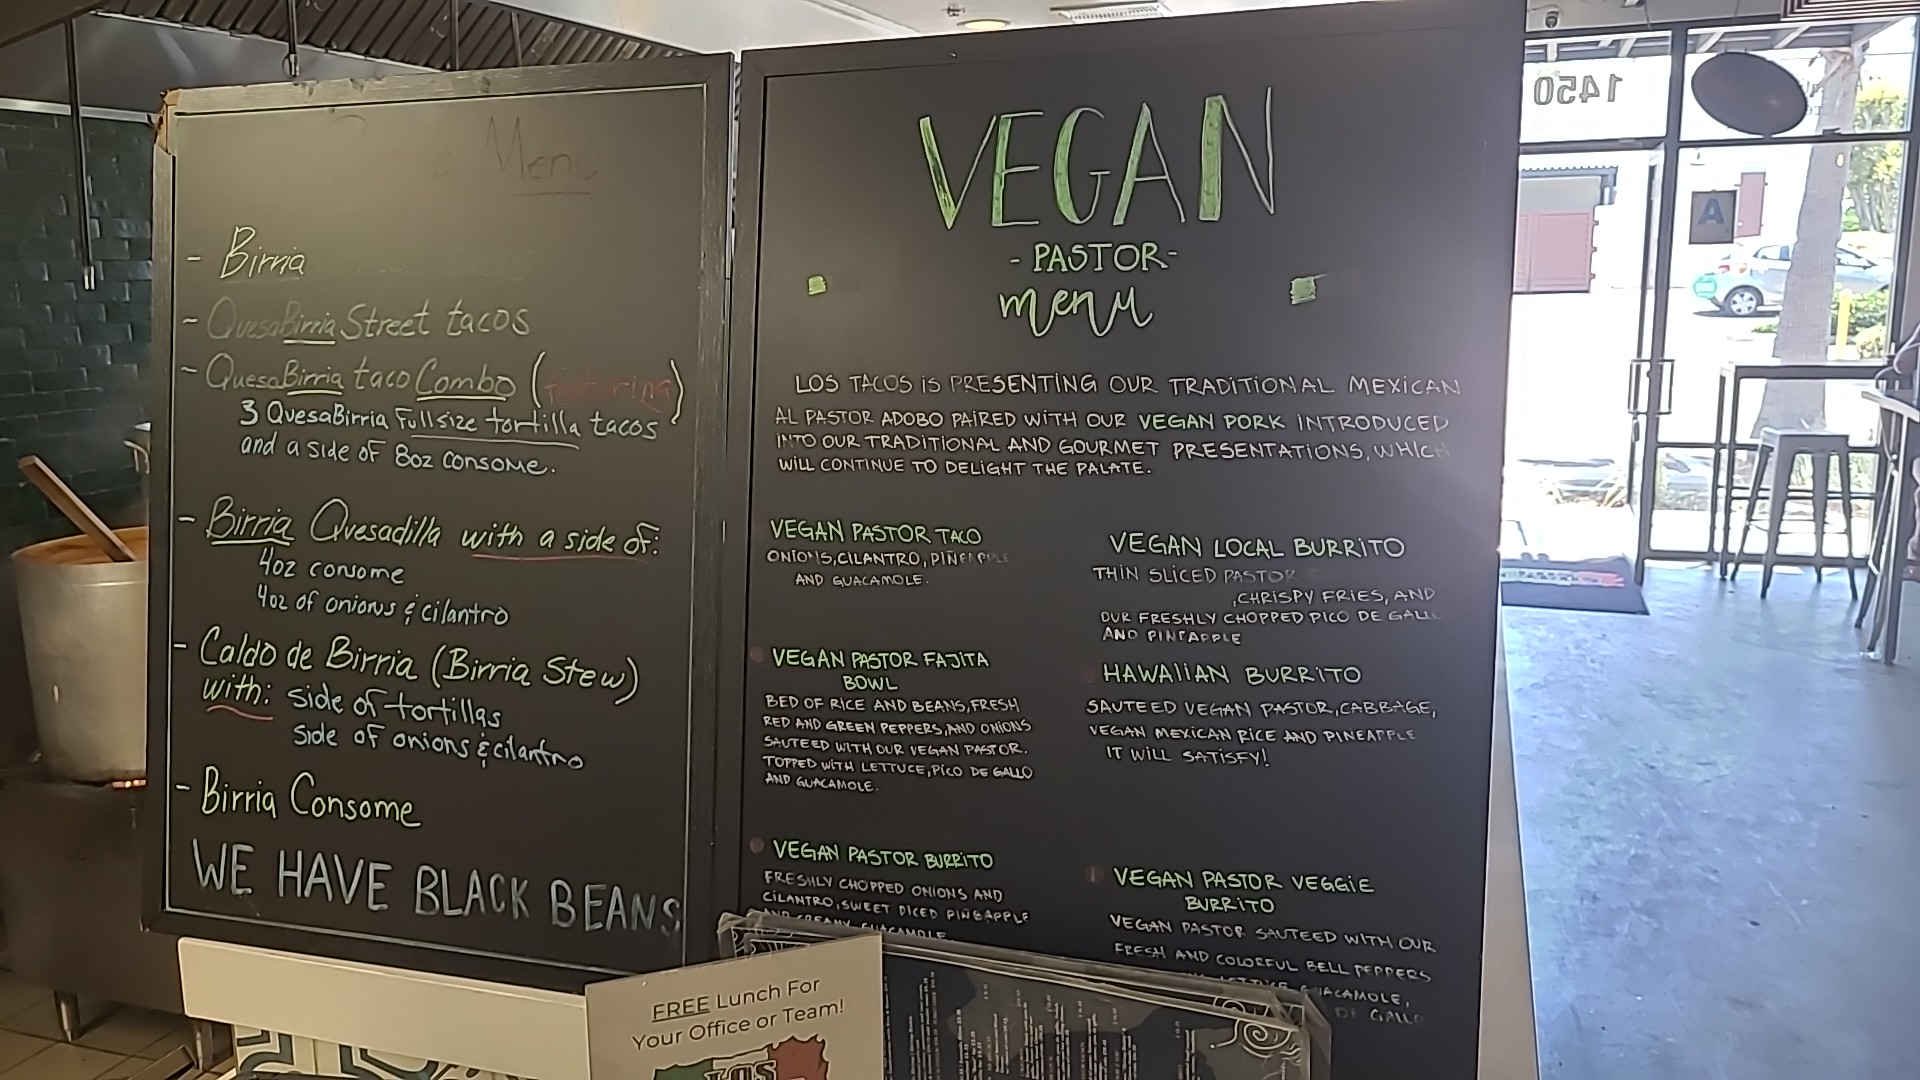 Menu
- Birria
- QuesaBirria Street tacos
- QuesaBirria taco Combo (featuring)
3 QuesaBirria Fullsize tortilla tacos
and a side of 8oz consome.
- Birria Quesadilla with a side of:
4oz consome
4oz of onions & cilantro
- Caldo de Birria (Birria Stew)
with: side of tortillas
side of onions & cilantro
- Birria Consome
WE HAVE BLACK BEANS
VEGAN
- PASTOR -
menu
LOS TACOS IS PRESENTING OUR TRADITIONAL MEXICAN
AL PASTOR ADOBO PAIRED WITH OUR VEGAN PORK INTRODUCED
INTO OUR TRADITIONAL AND GOURMET PRESENTATIONS, WHICH
WILL CONTINUE TO DELIGHT THE PALATE.
VEGAN PASTOR TACO
ONIONS, CILANTRO, PIÑEAPPLE
AND GUACAMOLE.
VEGAN PASTOR FAJITA
BOWL
BED OF RICE AND BEANS, FRESH
RED AND GREEN PEPPERS, AND ONIONS
SAUTEED WITH OUR VEGAN PASTOR.
TOPPED WITH LETTUCE, PICO DE GALLO
AND GUACAMOLE.
VEGAN PASTOR BURRITO
FRESHLY CHOPPED ONIONS AND
CILANTRO, SWEET DICED PIÑEAPPLE
AND CREAMY GUACAMOLE
VEGAN LOCAL BURRITO
THIN SLICED PASTOR
, CHRISPY FRIES, AND
OUR FRESHLY CHOPPED PICO DE GALLO
AND PINEAPPLE
HAWAIIAN BURRITO
SAUTEED VEGAN PASTOR, CABBAGE,
VEGAN MEXICAN RICE AND PINEAPPLE
IT WILL SATISFY!
VEGAN PASTOR VEGGIE
BURRITO
VEGAN PASTOR SAUTEED WITH OUR
FRESH AND COLORFUL BELL PEPPERS
LETTUCE, GUACAMOLE,
DE GALLO
FREE Lunch For
Your Office or Team!
LOS
1450
A